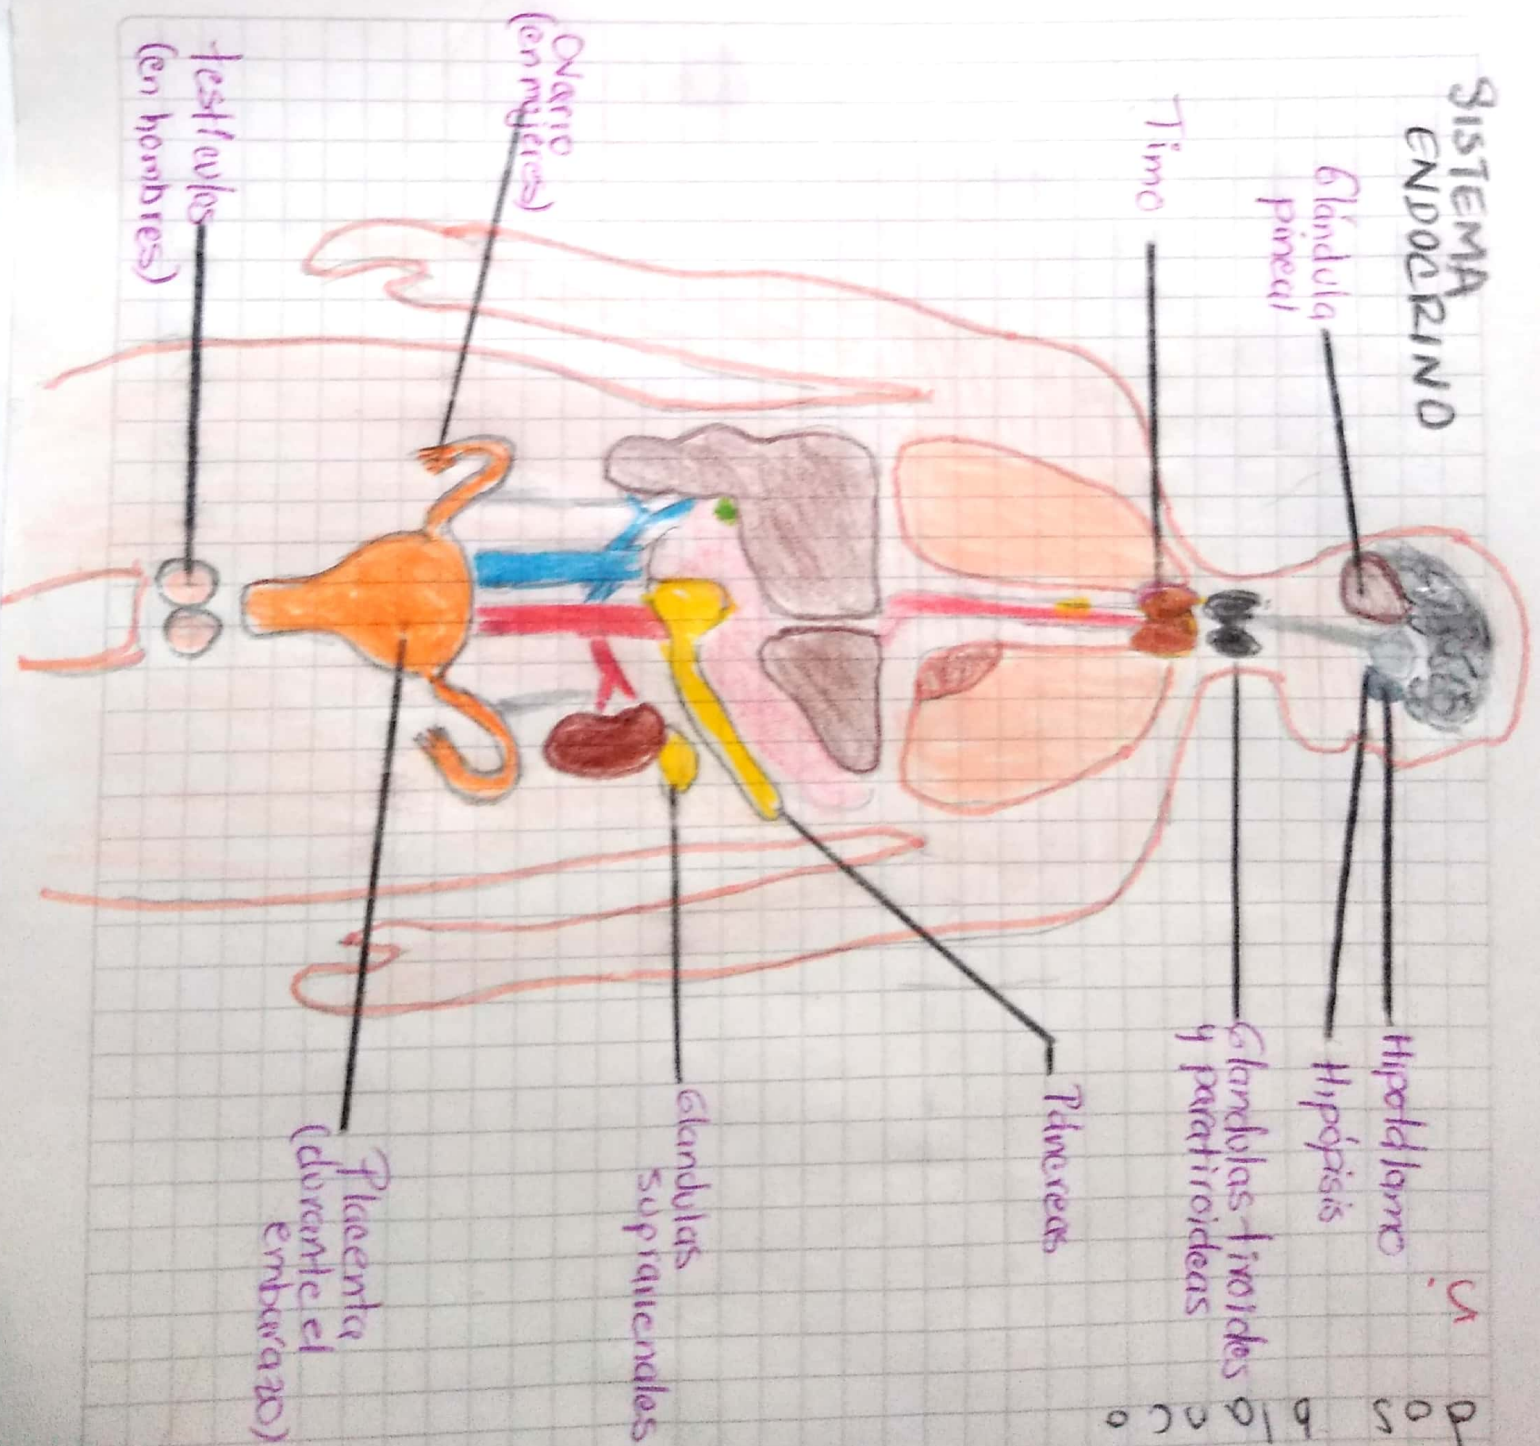 SISTEMA
ENDOCRINO
Glándula
pineal
Timo
Ovario
(en mujeres)
testículos
(en hombres)
Hipotálamo
Hipópisis
Glandulas tiroides
y paratiroideas
Páncreas
Glandulas
suprarrenales
Placenta
(durante el
embarazo)